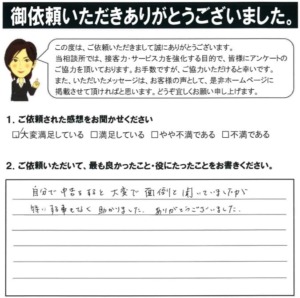 御依頼いただきありがとうございました。
この度は、ご依頼いただきまして誠にありがとうございます。
当相談所では、接客力・サービス力を強化する目的で、皆様にアンケートの
ご協力を頂いております。お手数ですが、ご協力いただけると幸いです。
また、いただいたメッセージは、お客様の声として、是非ホームページに
掲載させて頂ければと思います。どうぞ宜しくお願い申し上げます。
1. ご依頼された感想をお聞かせください
大変満足している □満足している □やや不満である □不満である
2. ご依頼いただいて、最も良かったこと・役にたったことをお書きください。
自分で申告すると大変で面倒と聞いていましたが
特に何事もなく助かりました。ありがとうございました。